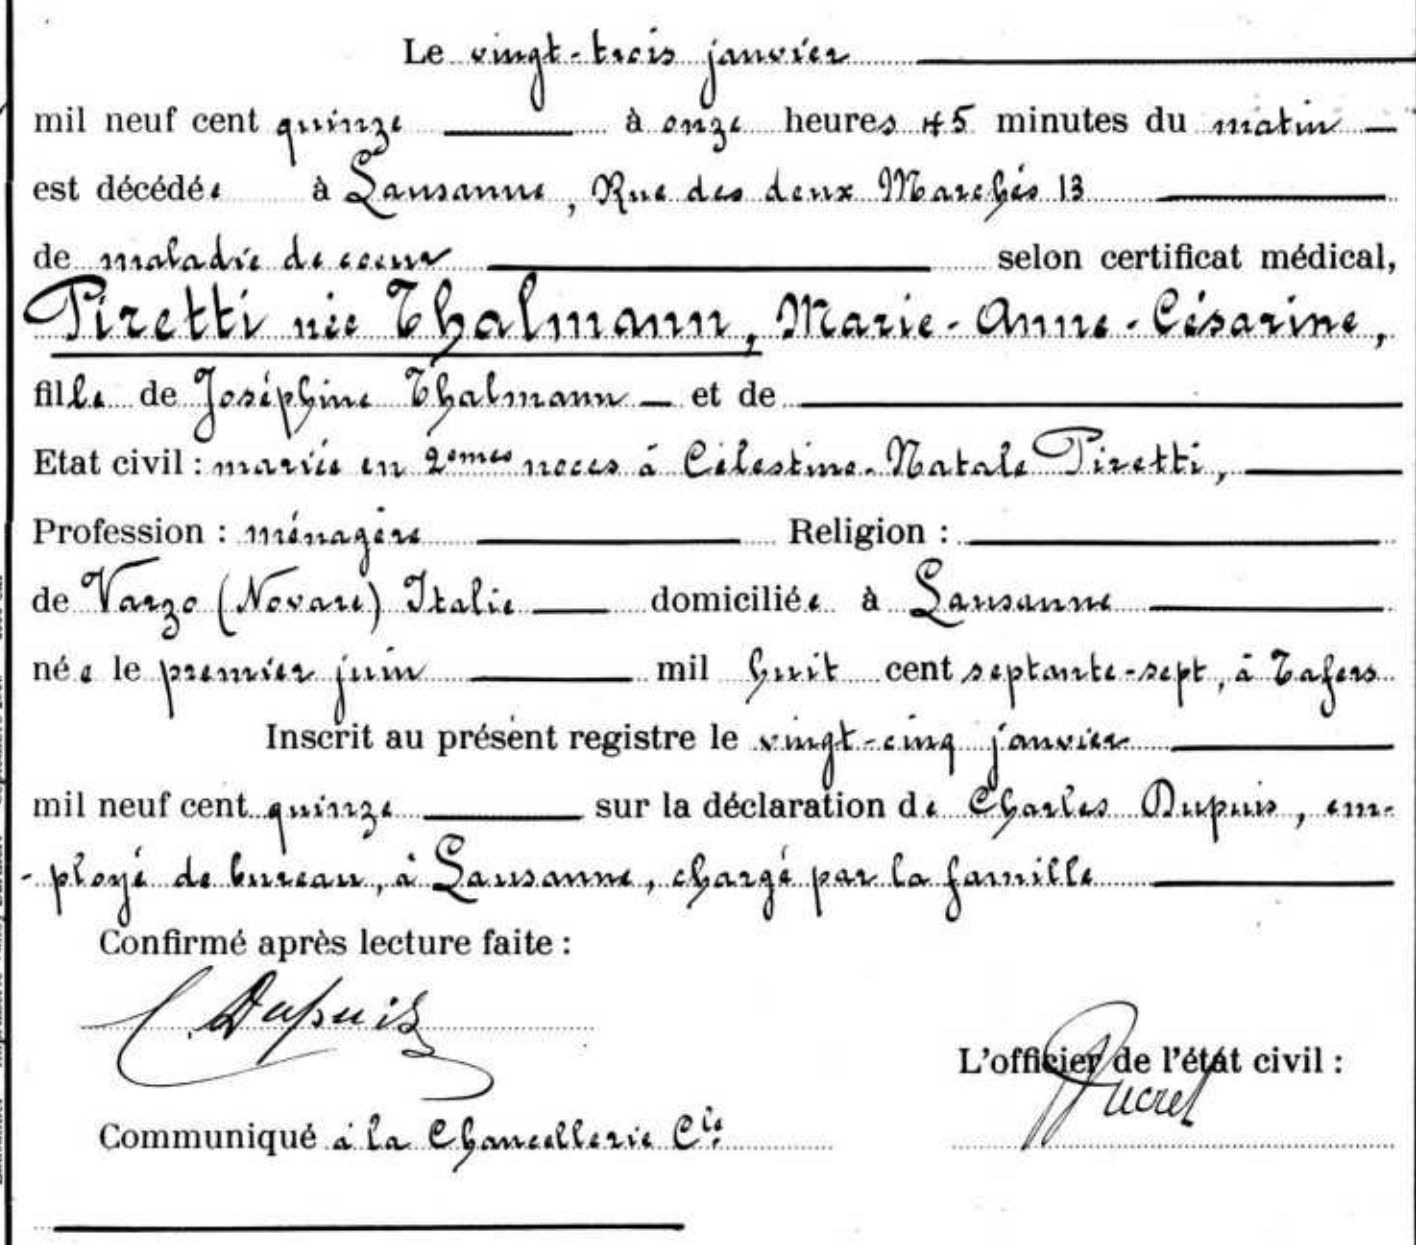 Le vingt-trois janvier
mil neuf cent quinze à onze heures 45 minutes du matin
est décédée à Lausanne, Rue des deux Marchés 13
de maladie de coeur selon certificat médical,
Piretti née Thalmann, Marie-Anne-Césarine,
fille de Joséphine Thalmann et de
Etat civil : mariée en 2emes noces à Célestino-Natale Piretti,
Profession : ménagère Religion :
de Varzo (Novare) Italie domiciliée à Lausanne
née le premier juin mil huit cent septante-sept, à Tafers
Inscrit au présent registre le vingt-cinq janvier
mil neuf cent quinze sur la déclaration de Charles Dupuis, em-
-ployé de bureau, à Lausanne, chargé par la famille
Confirmé après lecture faite :
C. Dupuis
L'officier de l'état civil :
Ducret
Communiqué à la Chancellerie Cle